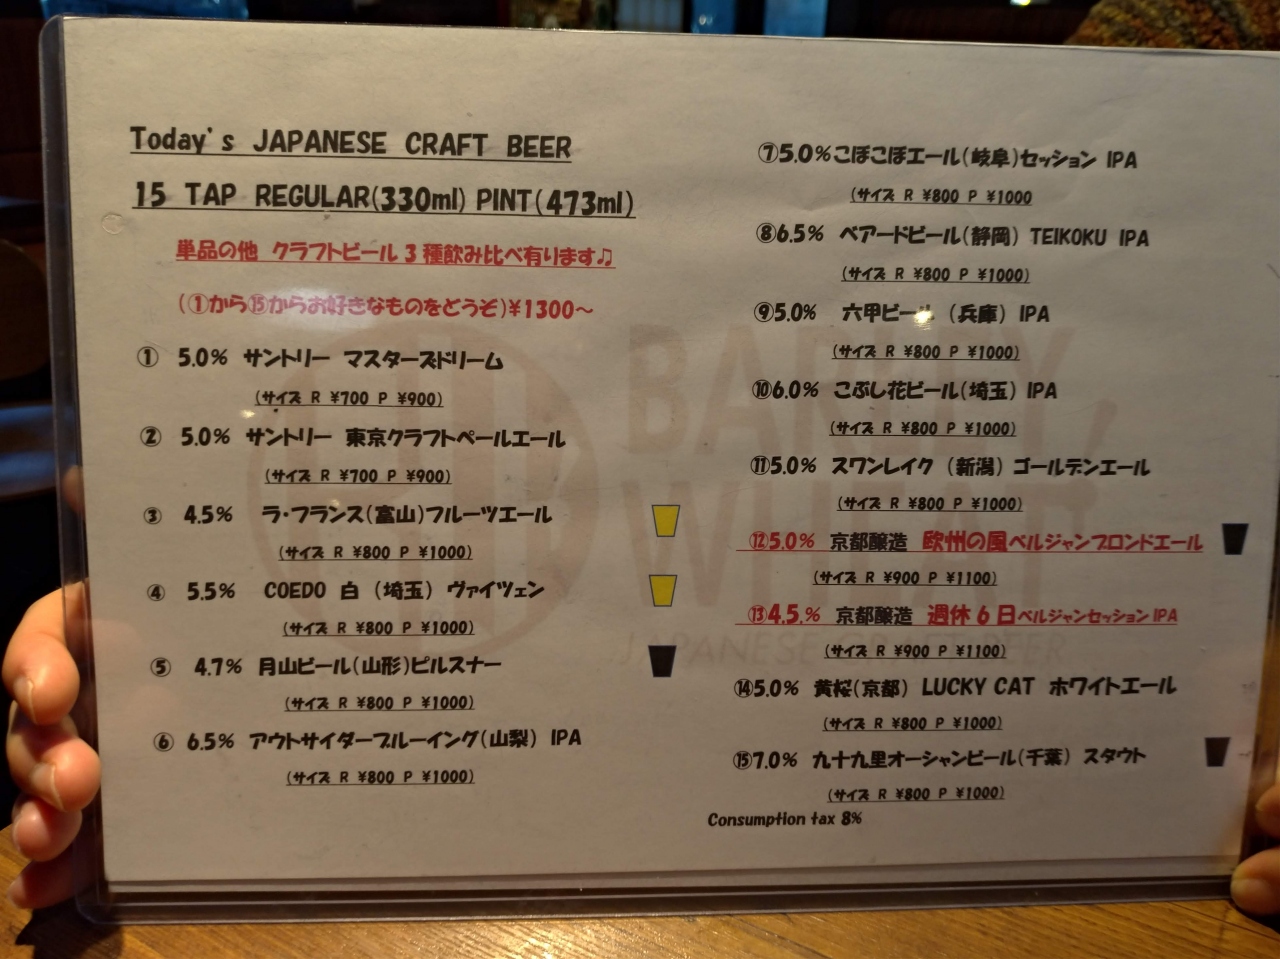 Today's JAPANESE CRAFT BEER
15 TAP REGULAR(330ml) PINT(473ml)
単品の他 クラフトビール3種飲み比べ有ります♫
(①から⑮からお好きなものをどうぞ)¥1300～
① 5.0% サントリー マスターズドリーム
(サイズ R ¥700 P ¥900)
② 5.0% サントリー 東京クラフトペールエール
(サイズ R ¥700 P ¥900)
③ 4.5% ラ・フランス(富山)フルーツエール
(サイズ R ¥800 P ¥1000)
④ 5.5% COEDO 白 (埼玉) ヴァイツェン
(サイズ R ¥800 P ¥1000)
⑤ 4.7% 月山ビール(山形)ピルスナー
(サイズ R ¥800 P ¥1000)
⑥ 6.5% アウトサイダーブルーイング(山梨) IPA
(サイズ R ¥800 P ¥1000)
⑦5.0%こぼこぼエール(岐阜)セッション IPA
(サイズ R ¥800 P ¥1000
⑧6.5% ベアードビール(静岡) TEIKOKU IPA
(サイズ R ¥800 P ¥1000)
⑨5.0% 六甲ビール (兵庫) IPA
(サイズ R ¥800 P ¥1000)
⑩6.0% こぶし花ビール(埼玉) IPA
(サイズ R ¥800 P ¥1000)
⑪5.0% スワンレイク (新潟) ゴールデンエール
(サイズ R ¥800 P ¥1000)
⑫5.0% 京都醸造 欧州の風ベルジャンブロンドエール
(サイズ R ¥900 P ¥1100)
⑬4.5.% 京都醸造 週休6日ベルジャンセッションIPA
(サイズ R ¥900 P ¥1100)
⑭5.0% 黄桜(京都) LUCKY CAT ホワイトエール
(サイズ R ¥800 P ¥1000)
⑮7.0% 九十九里オーシャンビール(千葉) スタウト
(サイズ R ¥800 P ¥1000)
Consumption tax 8%
JAPANESE CRAFT BEER